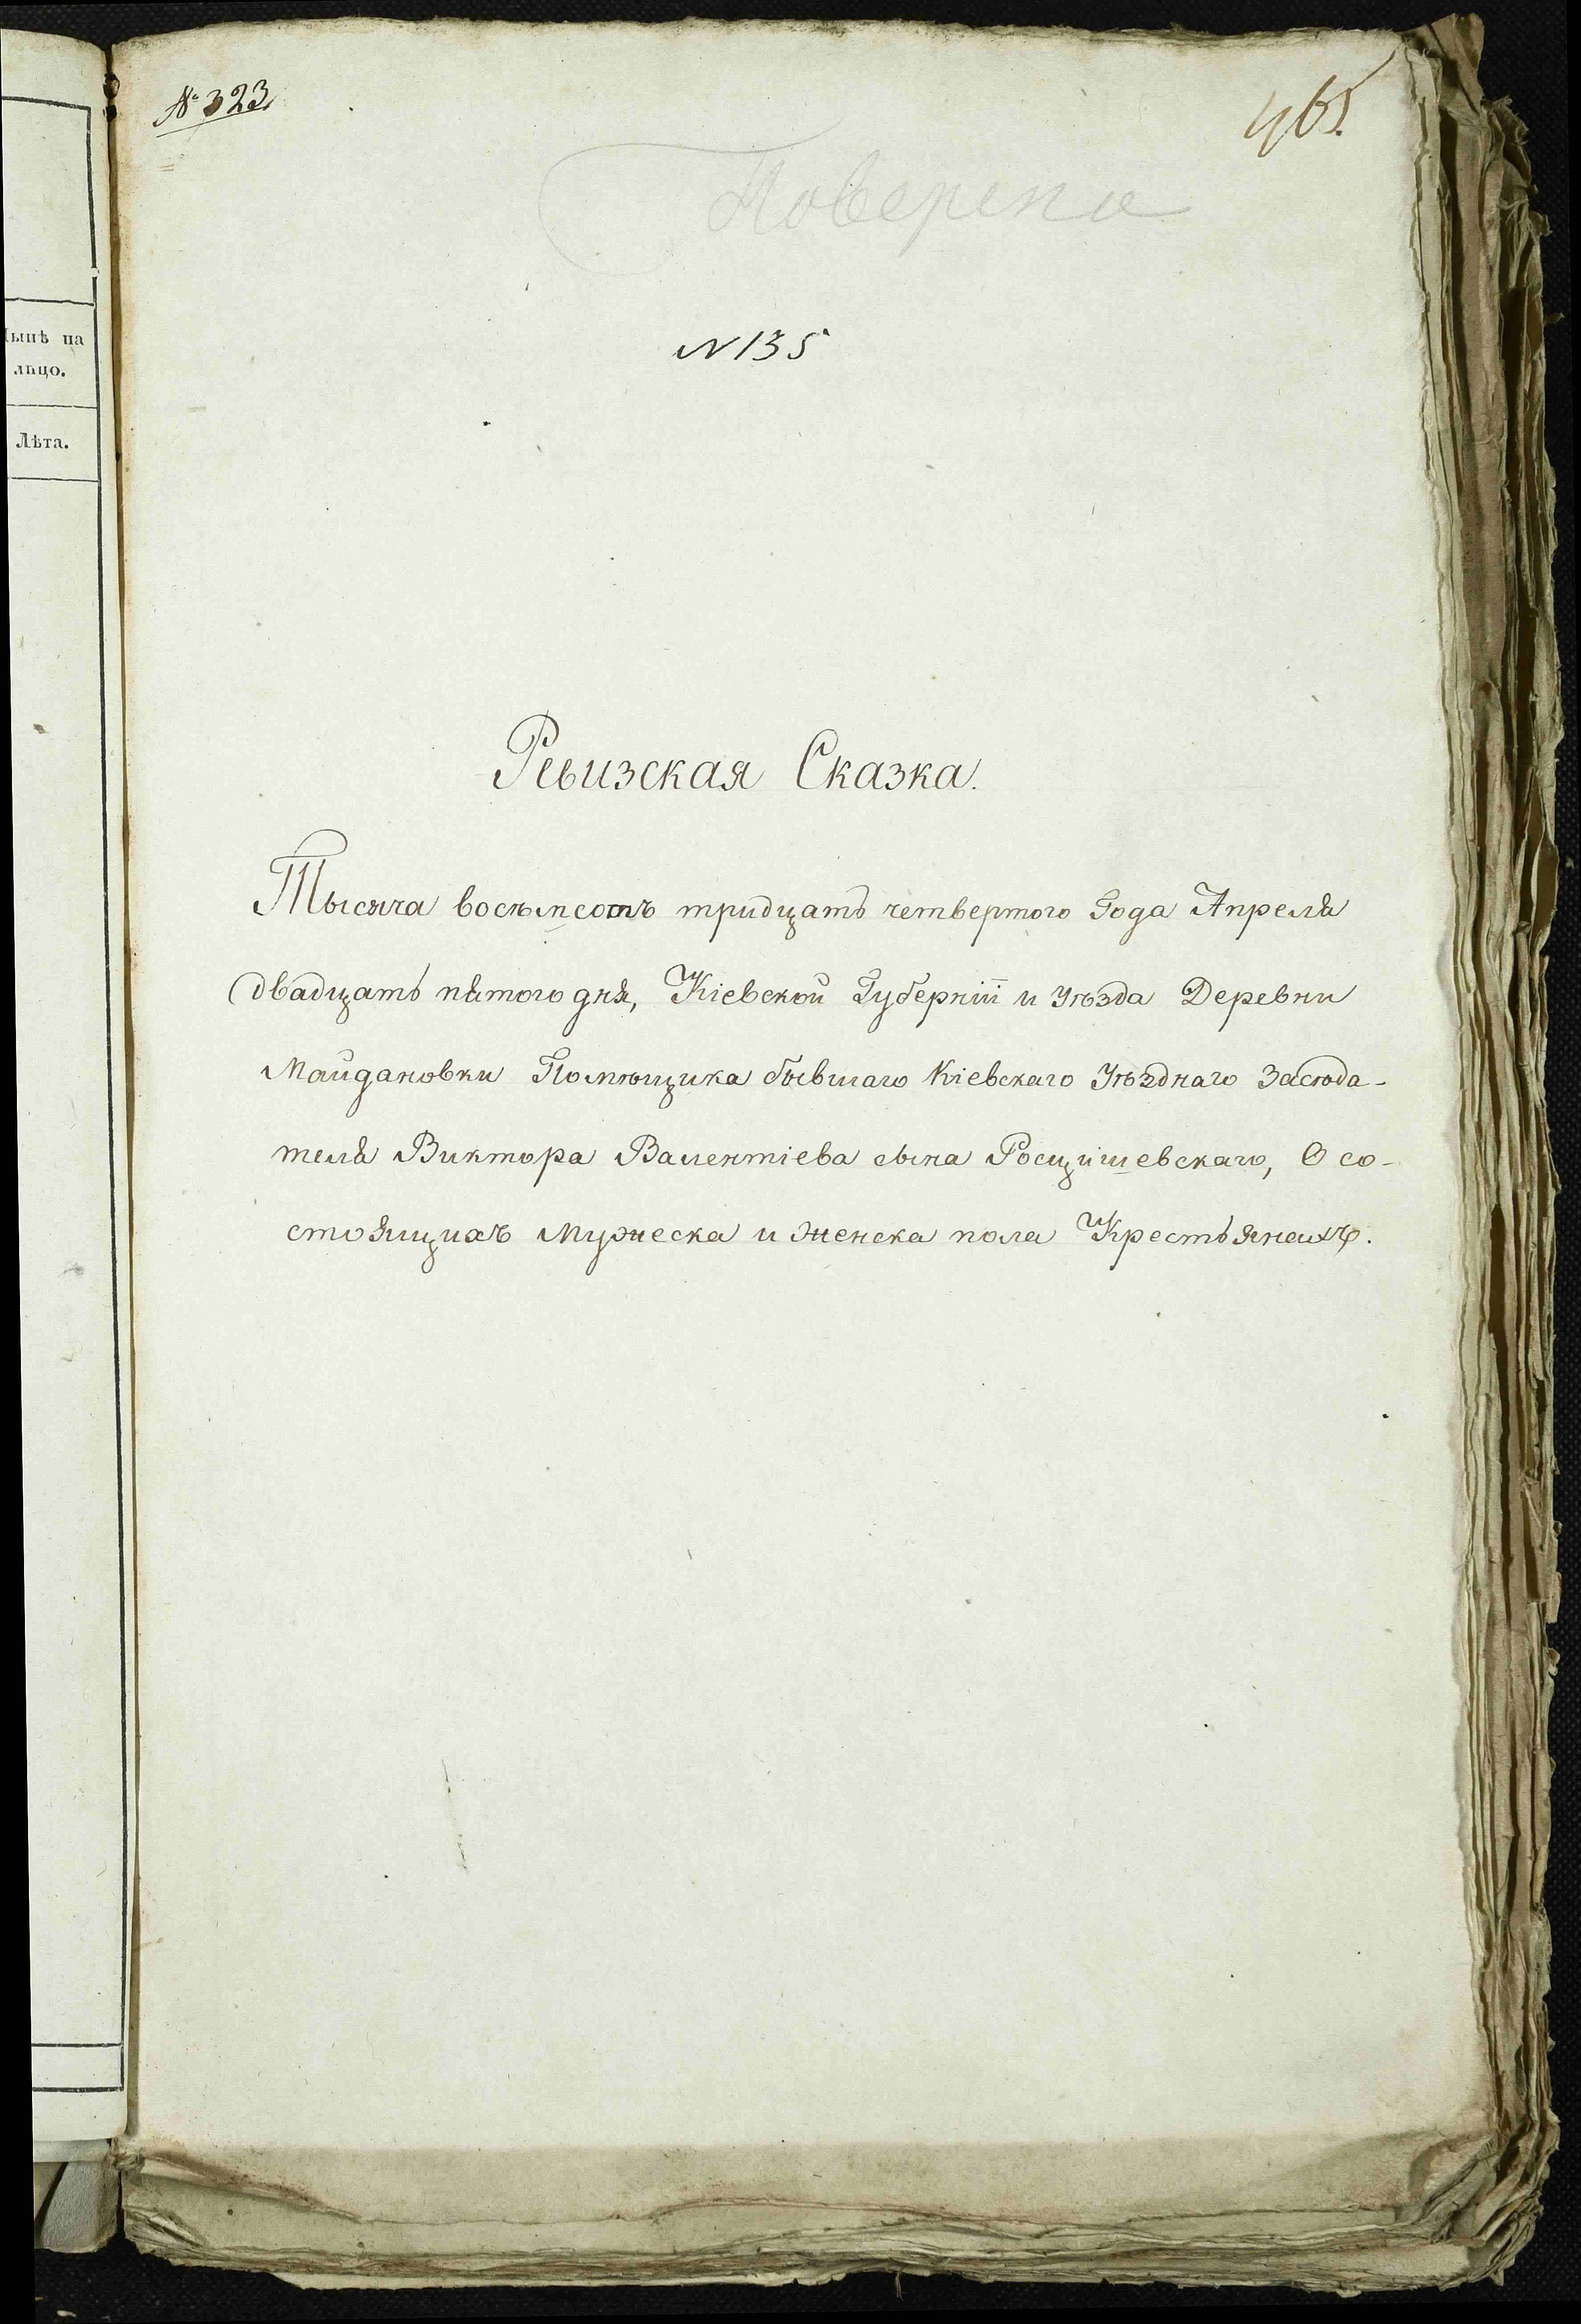 ынѣ на
лицо.
Лѣта.
№ 323
465.
Поверено
N 135
Ревизская Сказка.
Тысяча восѣмсотъ тридцать четвертого Года Апреля
двадцать пятого дня, Кіевской Губерніи и уѣзда Деревни
Майдановки Помѣщика бывшаго Кіевскаго Уѣзднаго Засѣда-
теля Виктора Валентіева сына Росцишевскаго, О со-
стоящихъ мужеска и женска пола Крестьянахъ.